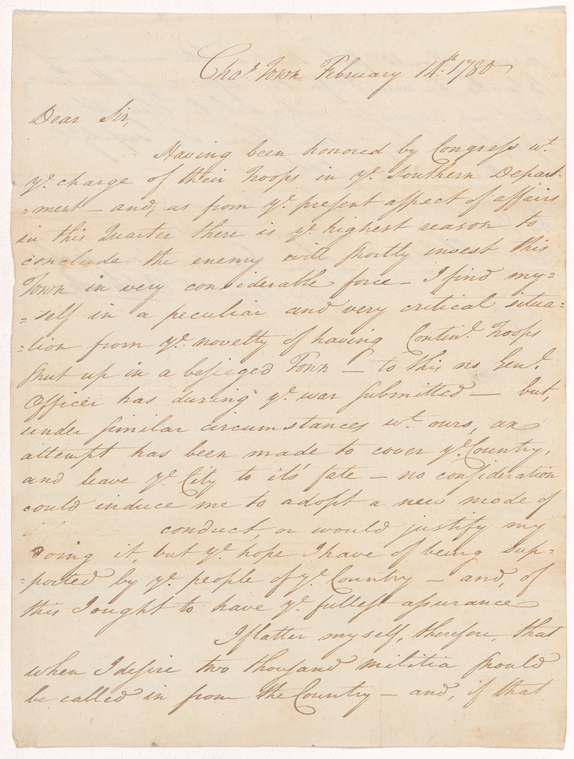 Chas. Town February 14th. 1780
Dear Sir,
Having been honored by Congress wt.
ye. charge of their Troops in ye. Southern Depart-
=ment – and, as from ye. present aspect of affairs
in this Quarter there is ye. highest reason to
conclude the enemy will shortly invest this
Town in very considerable force – I find my=
=self in a peculiar and very critical situa=
=tion from ye. novelty of having Continl. Troops
shut up in a besieged Town – to this no Genl.
Officer has during ye. war submitted – but,
under similar circumstances wt. ours, an
attempt has been made to cover ye. Country,
and leave ye. City to its' fate – no consideration
could induce me to adopt a new mode of
conduct, or would justify my
doing it, but ye. hope I have of being sup=
=ported by ye. people of ye. Country – and, of
this I ought to have ye. fullest assurance
I flatter myself, therefore, that
when I desire two thousand militia should
be called in from the Country – and, if that